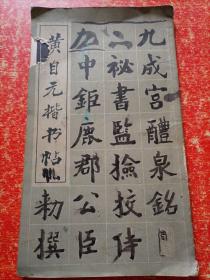 九成宫醴泉銘
祕書監撿挍侍
中鉅鹿郡公臣
勅撰
黄自元楷书帖